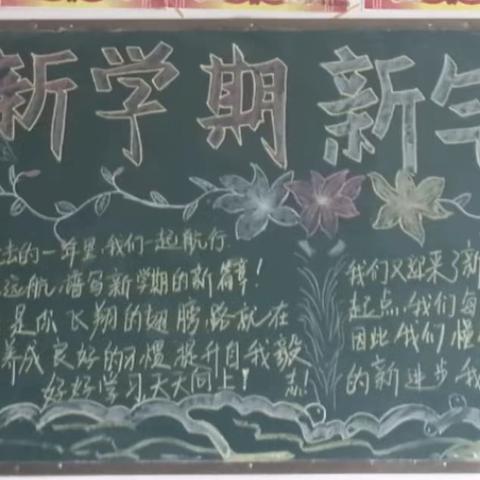 新学期 新年
去的一年里,我们一起航行
远航,谱写新学期的新篇章!
是你飞翔的翅膀,路就在
养成良好的习惯,提升自我毅志!
好好学习天天向上!
我们又迎来了新
起点,我们每
因此,我们懂
的新进步,我